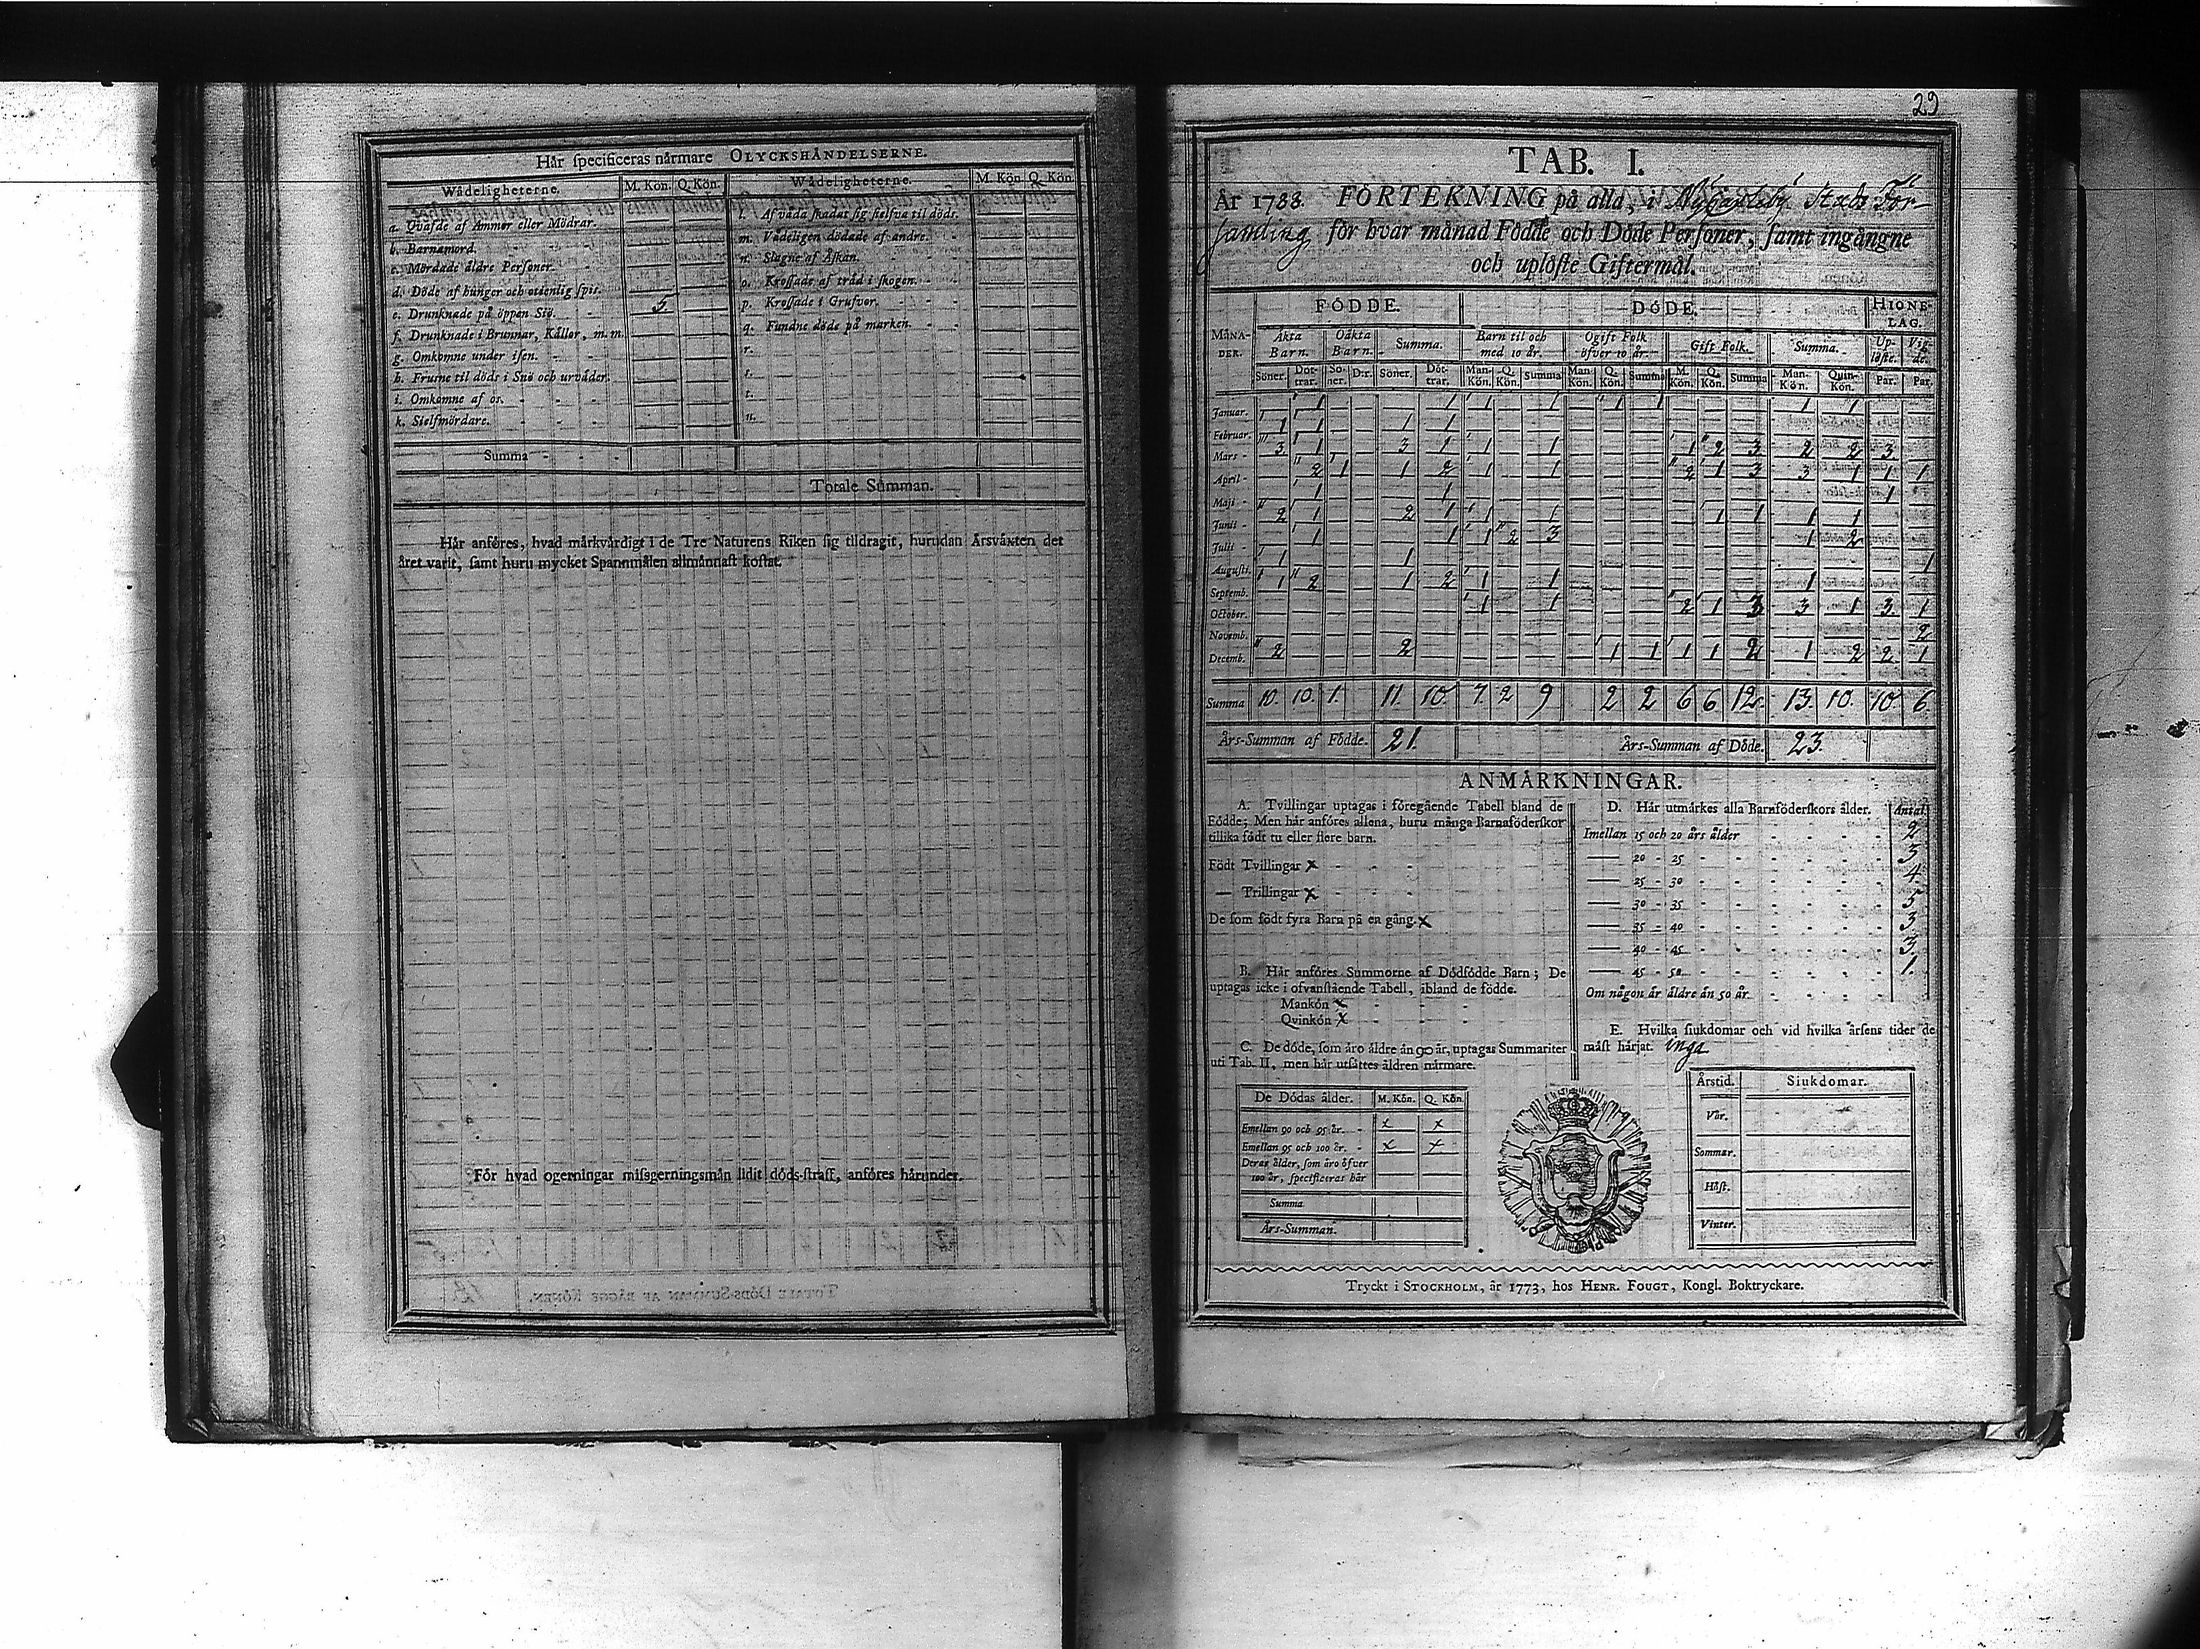 Här specificeras närmare OLYCKSHÄNDELSERNE.
Wådeligheterne. M. Kön. Q. Kön. Wådeligheterne. M. Kön. Q. Kön.
a. Qväfde af Ammor eller Mödrar. — —
b. Barnamord. — —
c. Mördade äldre Personer. — —
d. Döde af hunger och otienlig spis. — —
e. Drunknade på öppen Siö. 5. —
f. Drunknade i Brunnar, Källor, m. m. — —
g. Omkomne under isen. — —
h. Frusne til döds i Snö och urväder. — —
i. Omkomne af os. — —
k. Sielfmördare. — —
l. Af våda skadat sig sielfva til döds. — —
m. Vådeligen dödade af andre. — —
n. Slagne af Åskan. — —
o. Krossade af träd i skogen. — —
p. Krossade i Grufvor. — —
q. Fundne döde på marken. — —
r.
s.
t.
u.
Summa
Totale Summan.
Här anföres, hvad märkvärdigt i de Tre Naturens Riken sig tildragit, hurudan Årsväxten det
året varit, samt huru mycket Spannmålen allmännast kostat.
För hvad ogerningar missgerningsmän lidit döds-straff, anföres härunder.
29
TAB. I.
År 1788. FÖRTEKNING på alla, i Nycarleby Stads För-
samling för hvar månad Födde och Döde Personer, samt ingångne
och uplöste Giftermål.
FÖDDE. DÖDE. HIONE-LAG.
MÅNA-DER. Äkta Barn. Oäkta Barn. Summa. Barn til och med 10 år. Ogift Folk öfver 10 år. Gift Folk. Summa. Up-löste. Vig-de.
Söner. Döt-trar. Sö-ner. D:r. Söner. Döt-trar. Man-Kön. Q. Kön. Summa Man-Kön. Q. Kön. Summa M. Kön. Q. Kön. Summa Man-Kön. Quin-Kön. Par. Par.
Januar. — 1 — — — 1 1 — 1 — 1 1 — — — 1 1 — —
Februar. 1 1 — — 1 1 — — — — — — — — — — — — —
Mars - 3 1 — — 3 1 1 — 1 — — — 1 2 3 2 2 3 —
April - — 2 1 — 1 2 1 — 1 — — — 2 1 3 3 1 1 1
Maji - — 1 — — — 1 — — — — — — — — — — — 1 —
Junii - 2 1 — — 2 1 1 — 1 — — — — 1 1 1 1 — —
Julii - — 1 — — — 1 1 2 3 — — — — — — 1 2 — —
Augusti. 1 — — — 1 — — — — — — — — — — — — — 1
Septemb. 1 2 — — 1 2 1 — 1 — — — — — — 1 — — —
October. — — — — — — 1 — 1 — — — 2 1 3 3 1 3 1
Novemb. — — — — — — — — — — — — — — — — — — 2
Decemb. 2 — — — 2 — — — — — 1 1 1 1 2 1 2 2 1
Summa 10. 10. 1. 11. 10. 7. 2 9 2 2 6 6 12. 13. 10. 10 6.
Års-Summan af Födde. 21. Års-Summan af Döde. 23.
ANMÄRKNINGAR.
A. Tvillingar uptagas i föregående Tabell bland de
Födde; Men här anföres allena, huru många Barnaföderskor
tillika födt tu eller flere barn.
Födt Tvillingar x
— Trillingar x
De som födt fyra Barn på en gång. x
B. Här anföres Summorne af Dödfödde Barn; De
uptagas icke i ofvanstående Tabell, ibland de födde.
Mankön x
Qvinkön x
C. De döde, som äro äldre än 90 år, uptagas Summariter
uti Tab. II. men här utsättes åldren närmare.
De Dödas ålder. M. Kön. Q. Kön.
Emellan 90 och 95 år. - x x
Emellan 95 och 100 år. - x x
Deras ålder, som äro öfver
100 år, specificeras här
Summa
Års-Summan.
D. Här utmärkes alla Barnföderskors ålder. Antal.
Imellan 15 och 20 års ålder 2
— 20 - 25 3
— 25 - 30 4.
— 30 - 35 5
— 35 - 40 3
— 40 - 45 3.
— 45 - 50 1.
Om någon är äldre än 50 år
E. Hvilka siukdomar och vid hvilka årsens tider de
mäst härjat. inga
Årstid. Siukdomar.
Vår.
Sommar.
Höst.
Vinter.
Tryckt i STOCKHOLM, år 1773, hos HENR. FOUGT, Kongl. Boktryckare.